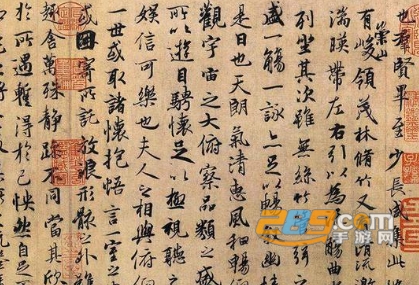 也群賢畢至少長咸集此
有崇山峻領茂林脩竹又有清流激
湍暎帶左右引以為流觴曲
列坐其次雖無絲竹管弦之
盛一觴一詠亦足以暢敘幽情
是日也天朗氣清惠風和暢仰
觀宇宙之大俯察品類之盛
所以遊目騁懷足以極視聽之
娛信可樂也夫人之相與俯仰
一世或取諸懷抱悟言一室之
或因寄所託放浪形骸之外雖
趣舍萬殊靜躁不同當其欣
於所遇暫得於己快然自足
289.com
手游网